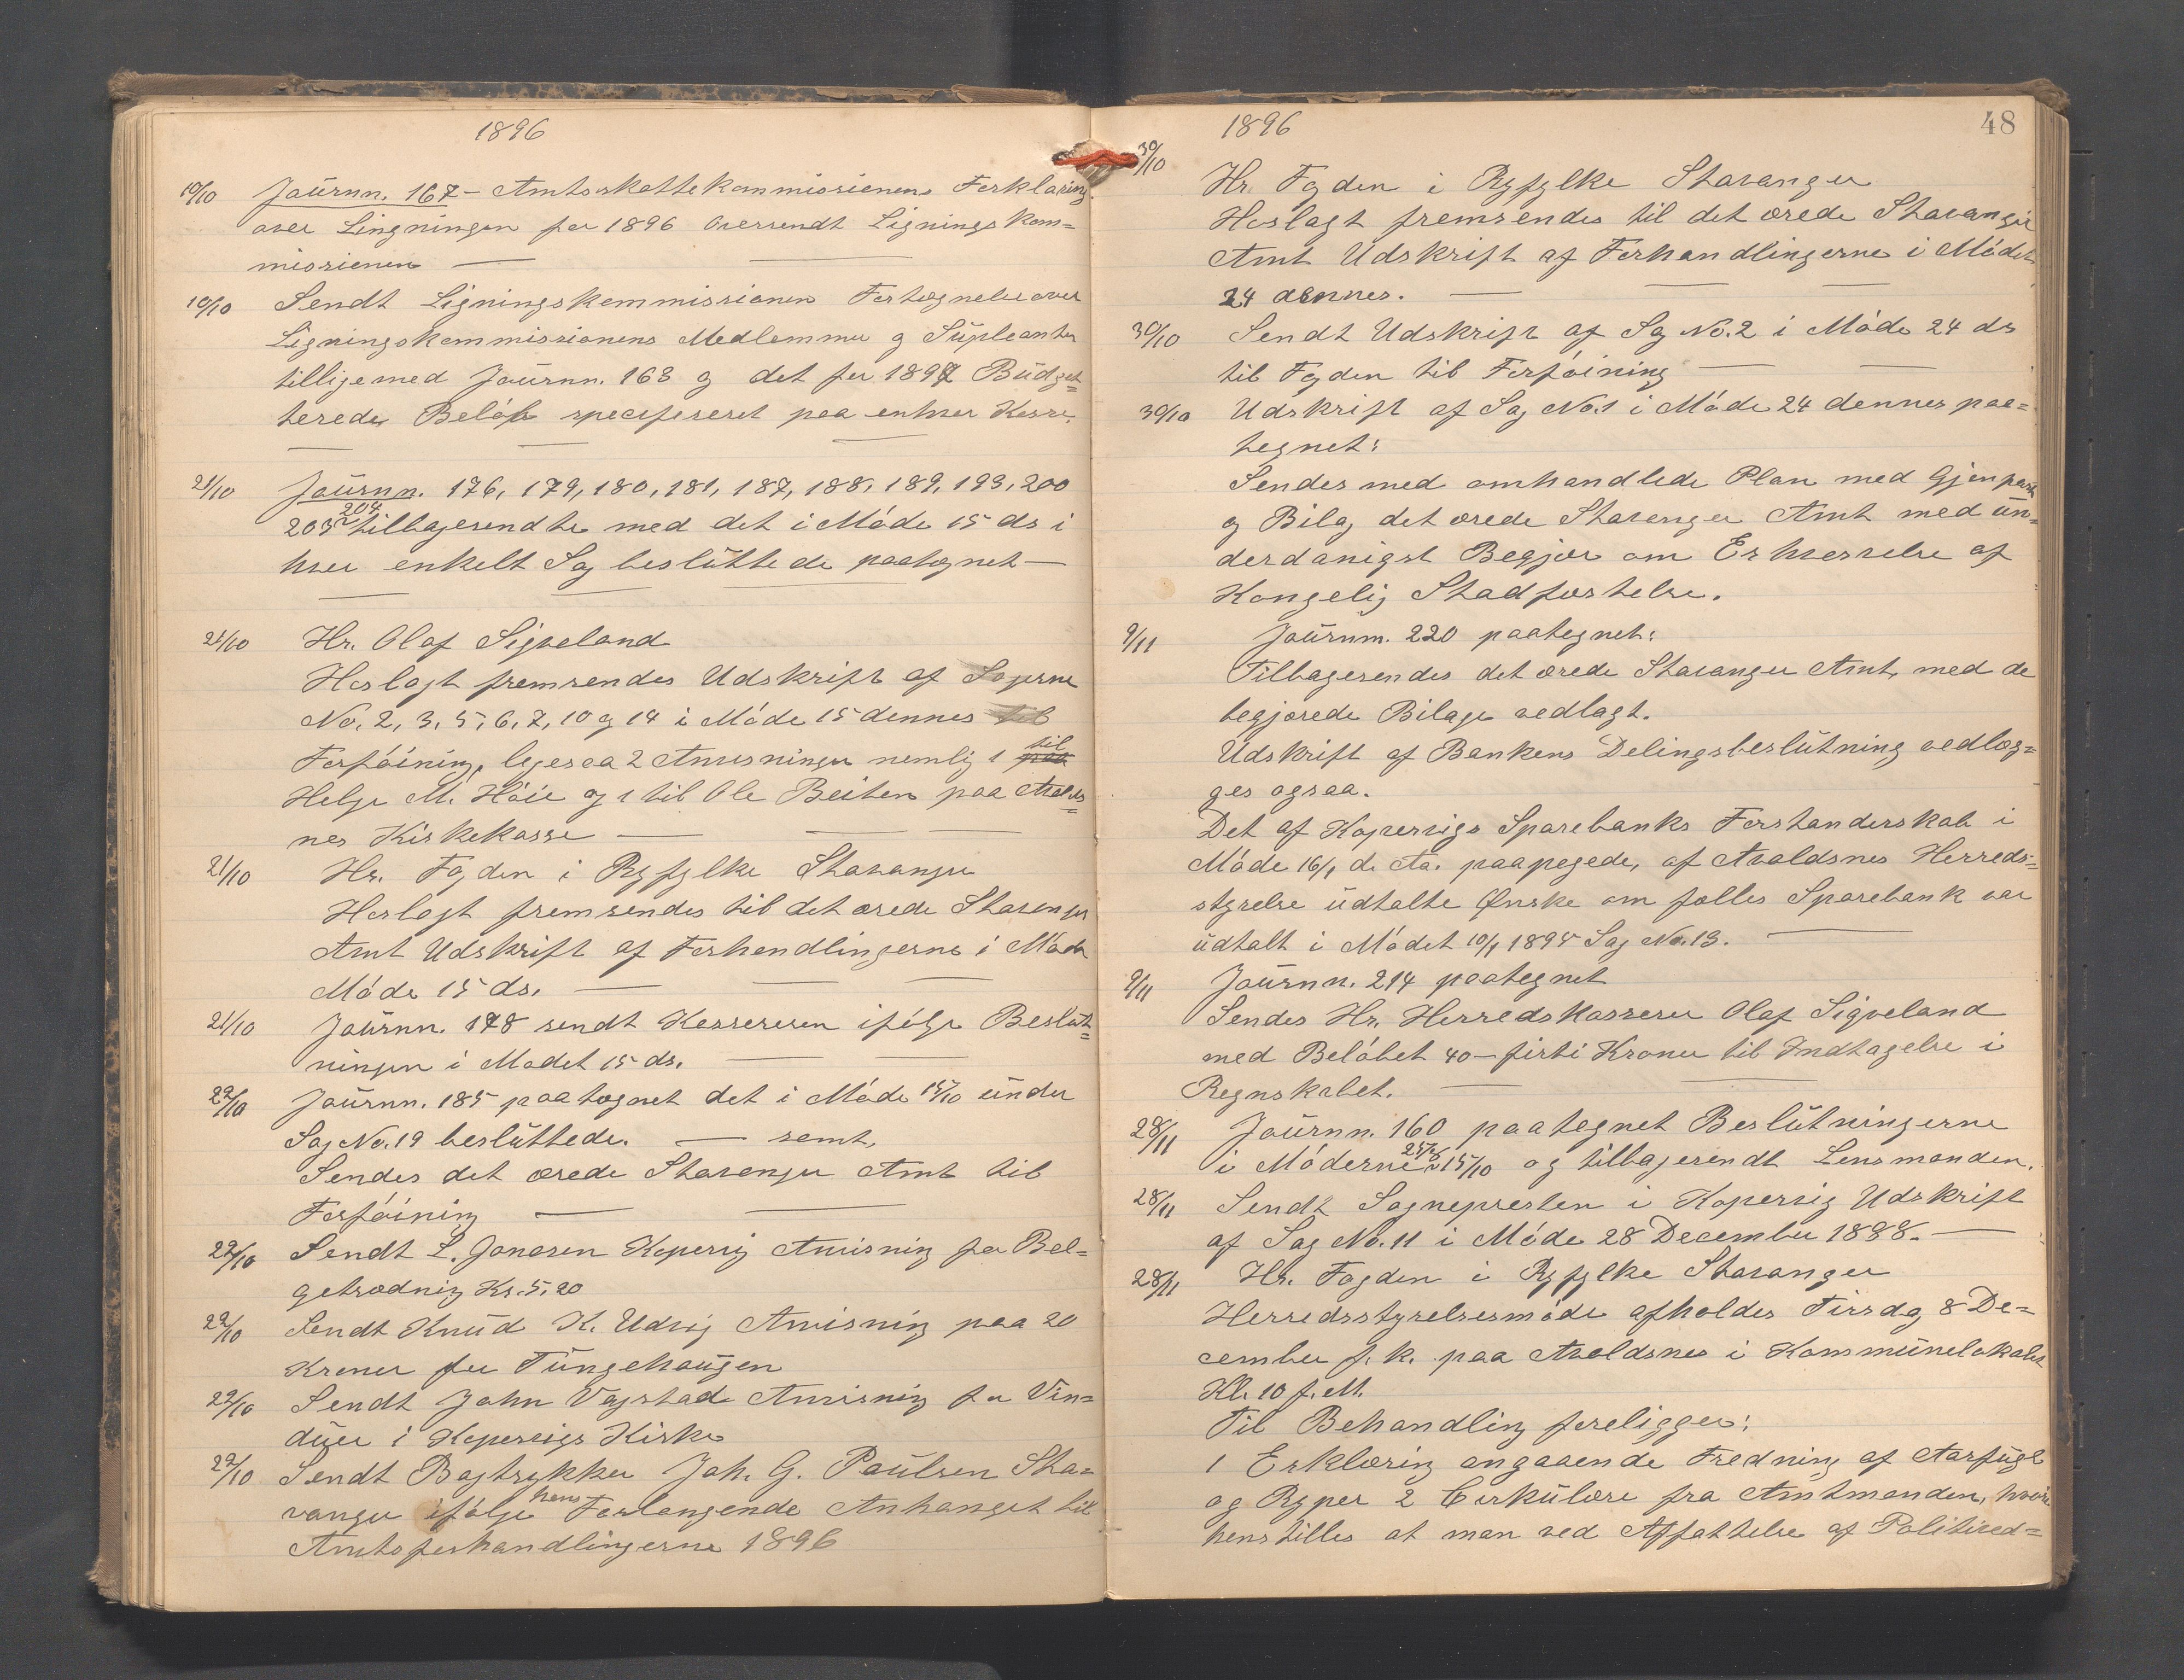 1896
10/10 Journn. 167 – Amtsskattekommissionens Forklaring
over Lingningen for 1896 Oversendt Lignings Kom=
missionen —
10/10 Sendt Ligningskommissionen Fortegnelse over
Ligningskommissionens Medlemmer og Supleanter
tilligemed Journn. 163 og det for 1897 Budget=
terede Beløb specifiseret paa enhver Kasse.
21/10 Journn. 176, 179, 180, 181, 187, 188, 189, 193, 200
203 204 tilbagesendte med det i Møde 15 ds i
hver enkelt Sag besluttede paategnet —
21/10 Hr. Olaf Sigveland
Hoslagt fremsendes Udskrift af Sagerne
No. 2, 3, 5, 6, 7, 10 og 14 i Møde 15 dennes til
Forføining, ligesaa 2 Anvisninger nemlig 1 til
Helge M. Høie og 1 til Ole Beiten paa Avalds=
nes Kirkekasse —
21/10 Hr. Fogden i Ryfylke Stavanger
Hoslagt fremsendes til det ærede Stavanger
Amt Udskrift af Forhandlingerne i Møde
Møde 15 ds. —
21/10 Journn. 178 sendt Kassereren ifølge Beslut=
ningen i Mødet 15 ds. —
22/10 Journn. 185 paategnet det i Møde 15/10 under
Sag No. 19 besluttede. — samt.
Sendes det ærede Stavanger Amt til
Forføining —
22/10 Sendt L. Jonasen Kopervig Anvisning for Bel=
getrædning Kr. 5,20
22/10 Sendt Knud K. Udvig Anvisning paa 20
Kroner for Tungehaugen
22/10 Sendt John Vagstad Anvisning for Vin=
duer i Kopervigs Kirke
22/10 Sendt Bogtrykker Joh. G. Paulsen Sta=
vanger ifølge hans Forlangende Anhanget til
Amtsforhandlingerne 1896
1896
48
30/10 Hr. Fogden i Ryfylke Stavanger
Hoslagt fremsendes til det ærede Stavanger
Amt Udskrift af Forhandlingerne i Mødet
24 dennes. —
30/10 Sendt Udskrift af Sag No. 2 i Møde 24 ds
til Fogden til Forføining —
30/10 Udskrift af Sag No. 1 i Møde 24 dennes paa=
tegnet:
Sendes med omhandlede Plan med Gjenpart
og Bilag det ærede Stavanger Amt med un=
derdanigst Begjær om Erhvervelse af
Kongelig Stadfæstelse.
9/11 Journn. 220 paategnet:
Tilbagesendes det ærede Stavanger Amt, med de
begjærede Bilage vedlagt.
Udskrift af Bankens Delingsbeslutning vedlæg=
ges ogsaa.
Det af Kopervigs Sparebanks Forstanderskab i
Møde 16/1 d. Aa. paapegede, af Avaldsnes Herreds=
styrelse udtalte Ønske om fælles Sparebank var
udtalt i Mødet 10/1 1895 Sag No. 13. —
9/11 Journn. 214 paategnet
Sendes Hr. Herredskasserer Olaf Sigveland
med Beløbet 40 – firti Kroner til Indtagelse i
Regnskabet. —
28/11 Journn. 160 paategnet Beslutningerne
i Møderne 25/6 & 15/10 og tilbagesendt Lensmanden.
28/11 Sendt Sognepresten i Kopervig Udskrift
af Sag No. 11 i Møde 28 December 1888. —
28/11 Hr. Fogden i Ryfylke Stavanger
Herredsstyrelsesmøde afholdes Tirsdag 8 De=
cember f. k. paa Avaldsnes i Kommunelokalet
Kl. 10 f. M.
Til Behandling foreligger:
1 Erklæring angaaende Fredning af Aarfugl
og Ryper 2 Cirkulære fra Amtmanden, hvori
henstilles at man ved Affattelse af Politived=